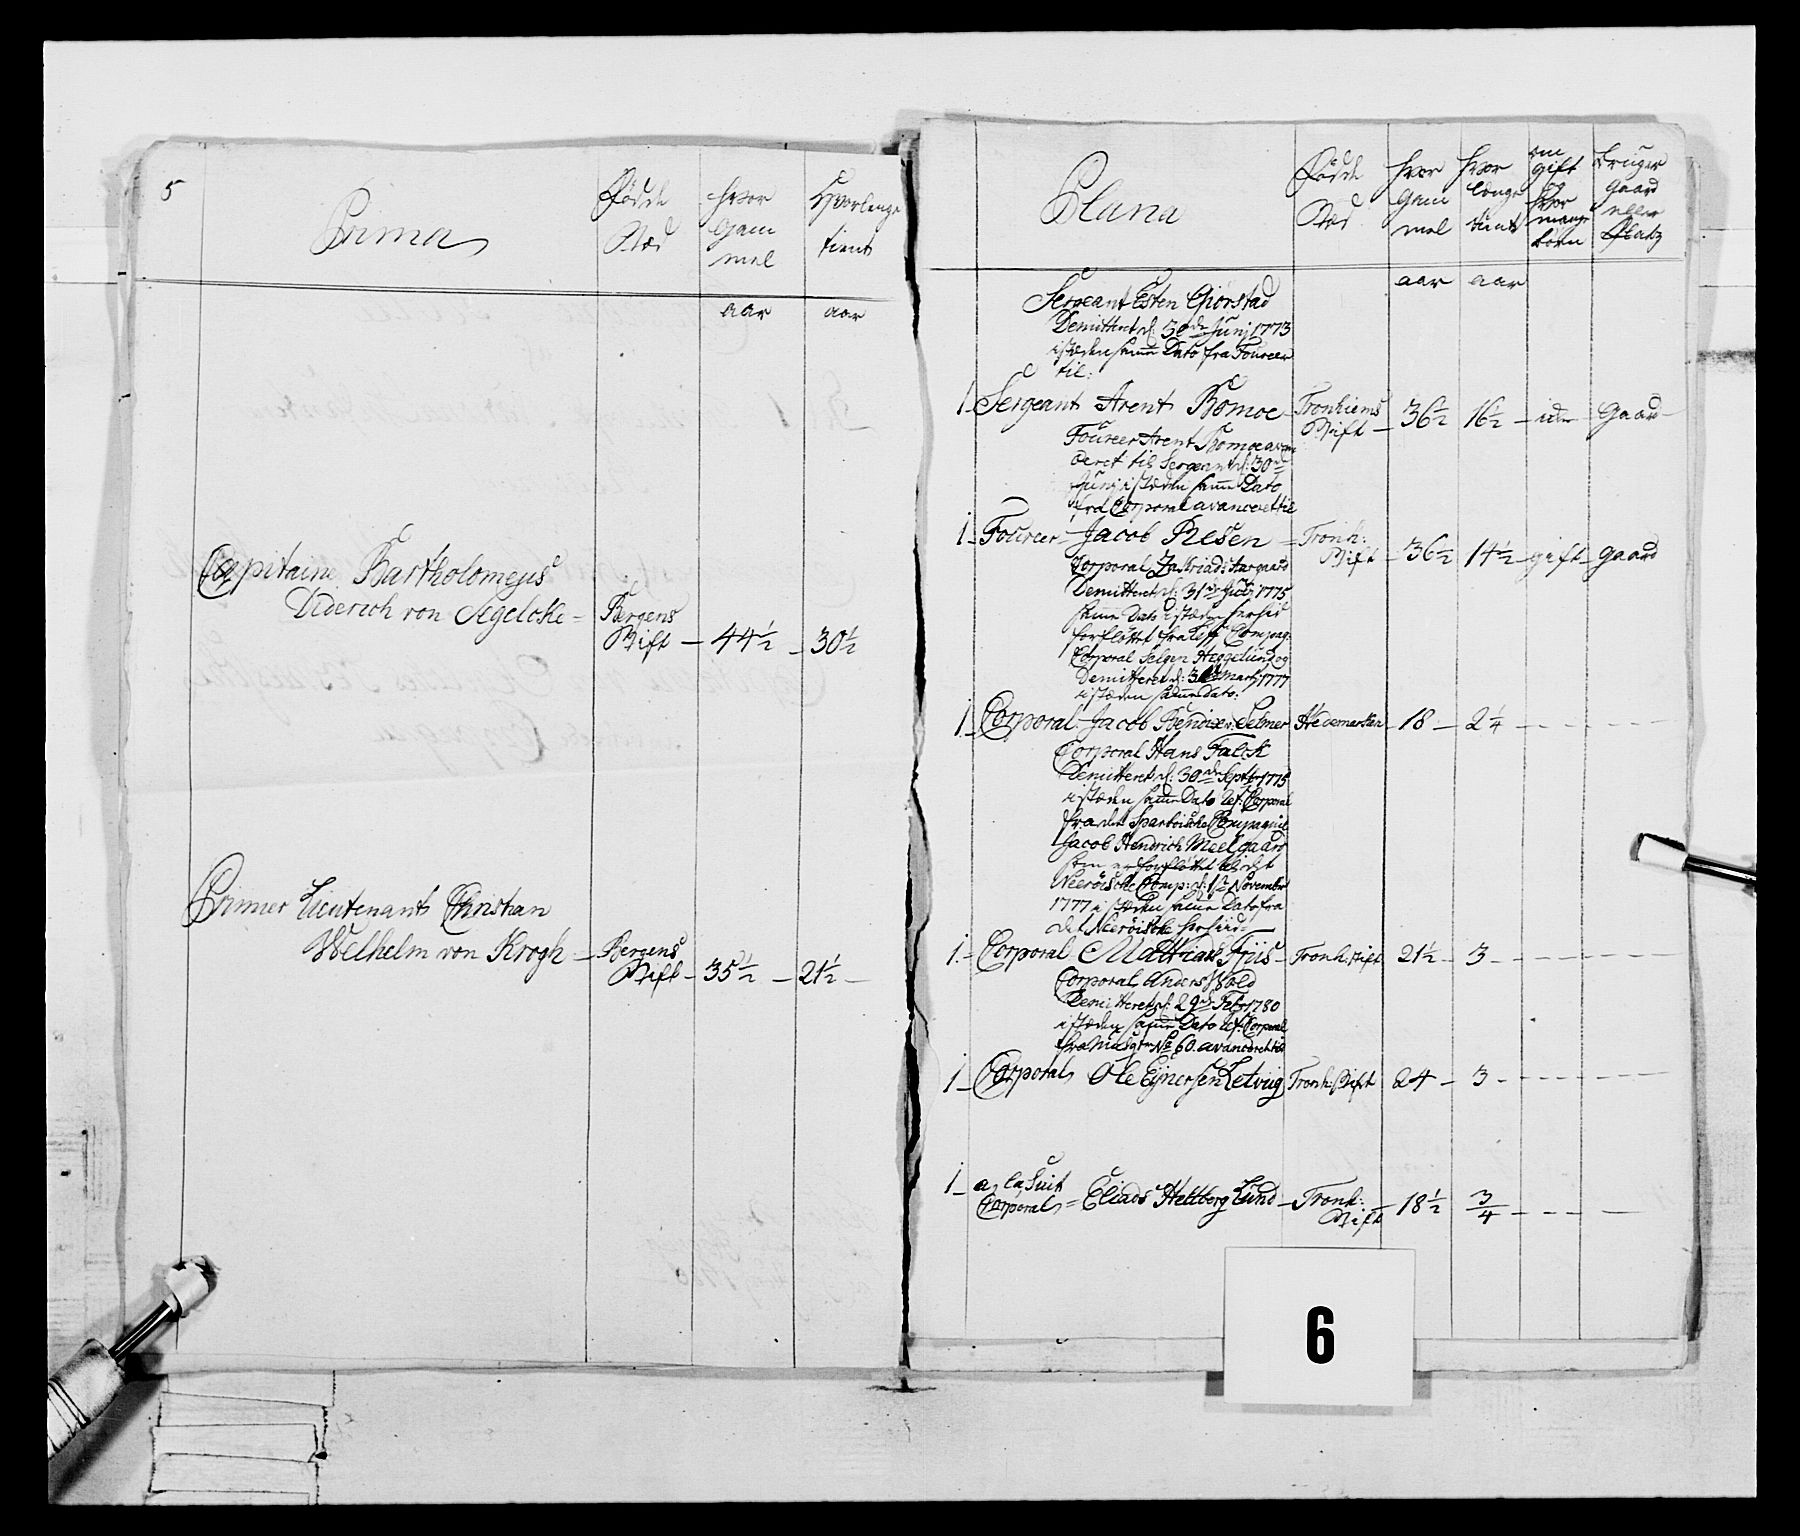 5
Prima
Fødde
Stæd
hvor
gam
mel
Hvorlenge
tient
aar
aar
Capitaine Bartholomeus
Diderich von Segelcke =
Bergens
Stift - 44½ - 30½
Primier Lieutenant Christian
Welhelm von Krogh -
Bergens
Stift - 35½ - 21½ -
Plana
Fødde
Stæd
hvor
gam
mel
hvor
længe
tient
om
gift
og
hvor
mange
børn
bruger
gaard
eller
Platz
aar
aar
Sergeant Esten Giørstad
Demitteret d: 30de Junj 1773
istæden samme Dato fra Foureer
til:
1 Sergeant Arent Bomoe - Tronhiems
Stift - 36½ 16½ - Gaard -
Foureer Arent Bomoe avan
ceret til Sergeant d: 30de
Junj istæden samme Dato
fra Corporal avanceret til
1 - Foureer Jacob Resen = Tronh:
Stift - 36½ 14½ - gift - gaard
Corporal
Demitteret d: 31de 1775
samme Dato istæden herhid
forfløttet fra Compag:
Corporal Selgen Heggelund og
Demitteret d: 31 Martj 1777
istæden samme Dato:
1 Corporal Jacob Bendixen Selmer Hedemarken - 18 - 2¼ - - - -
Corporal Hans Falck
Demitteret d: 30de Septb 1775
istæden samme Dato Corporal
fra det Sparboiske Compagnie
Jacob Hendrich Meelgaard
som er forfløttet til det
Neerøiske Comp: d: 1te Novembr
1777 istæden samme Dato fra
det Neerøiske herhiid =
1 - Corporal Matthias Friis - Tronh: Stift 21½ - 3 - - - -
Corporal Anders Wold
Demitteret d: 29de Feb: 1780
istæden samme Dato Corporal
fra No 60. avanceret til
1 - Corporal Ole Ejnersen Letvig Tronh: Stift 24 - 3 - - - -
1 - a la Suit
Corporal = Eliads Hellberg Lund - Tronh:
Stift - 18½ ¾ - - - -
6